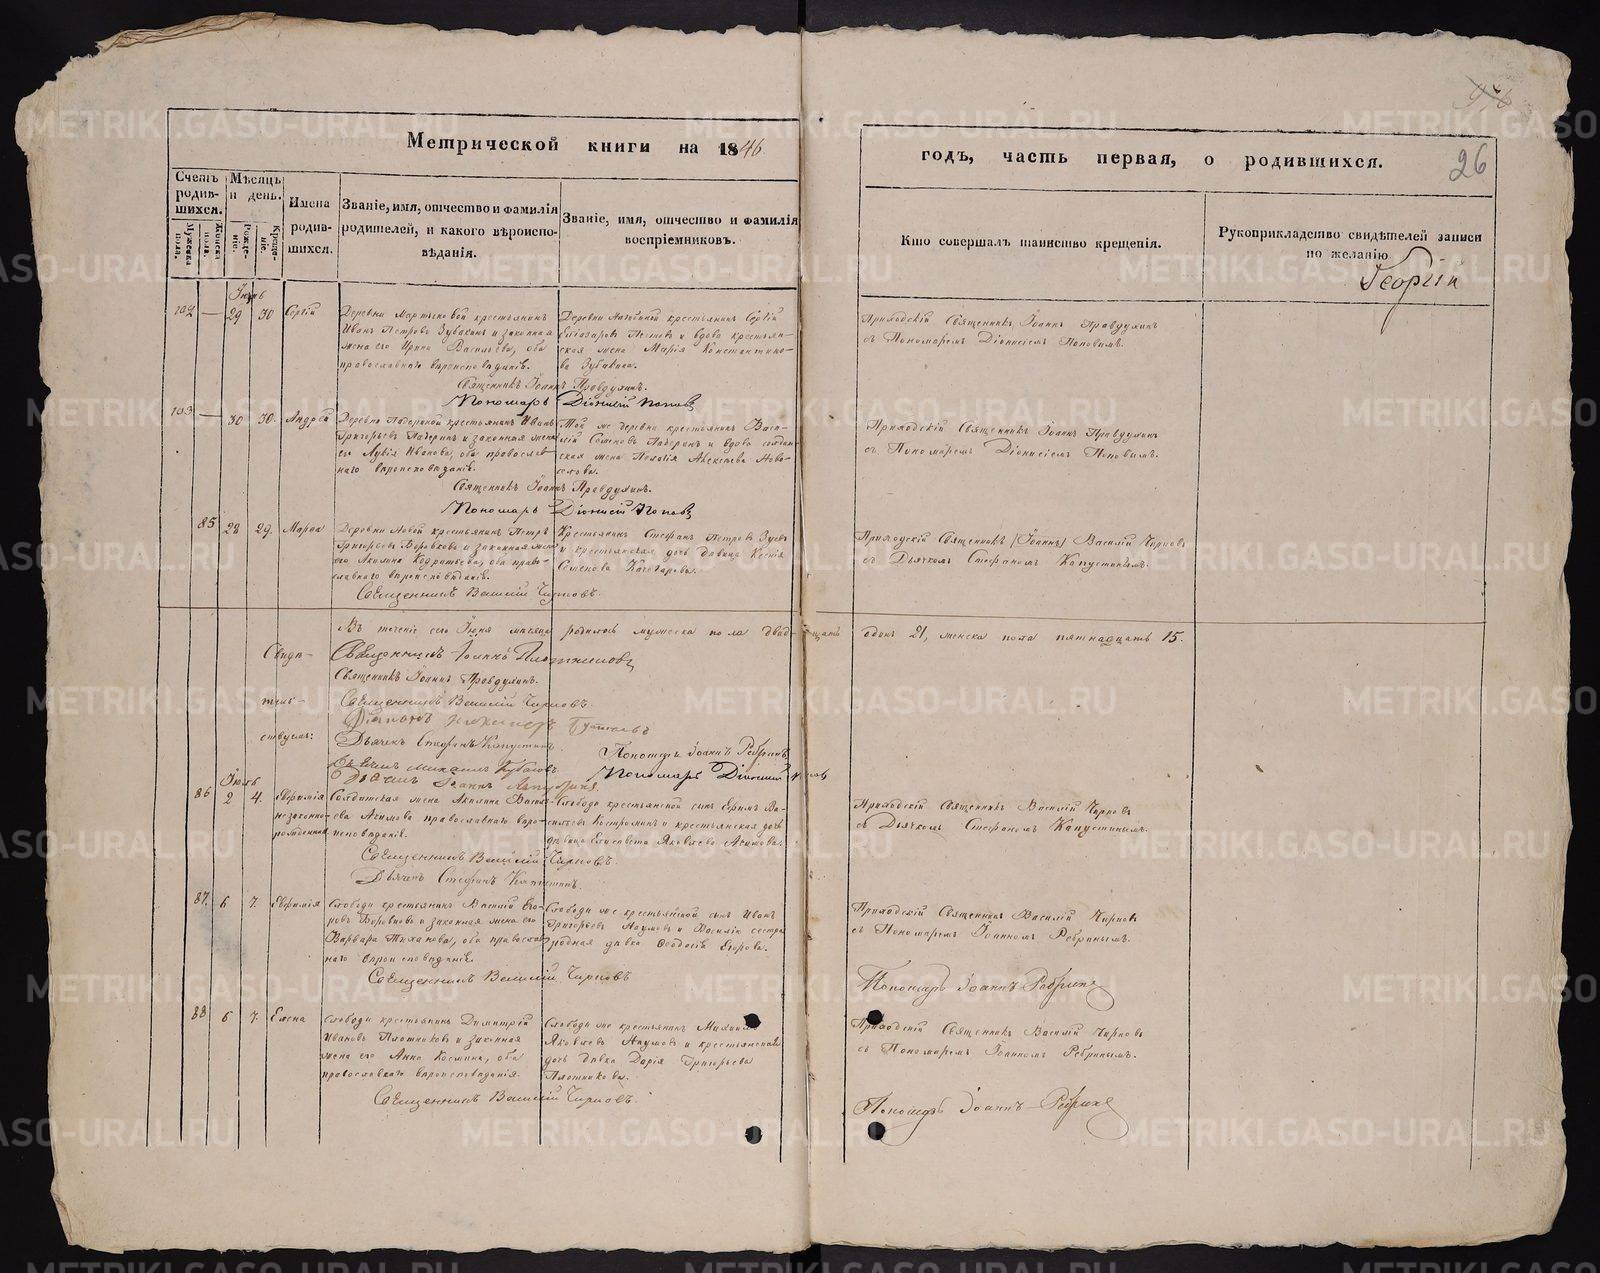 Метрической книги на 1846
годъ, часть первая, о родившихся.
26
Счетъ родившихся.
Мужеска пола.
Женска пола.
Мѣсяцъ и день.
Рожденіе.
Крещеніе.
Имена родившихся.
Званіе, имя, отчество и фамилія
родителей, и какого вѣроиспо-
вѣданія.
Званіе, имя, отчество и фамилія
воспріемниковъ.
Кто совершалъ таинство крещенія.
Рукоприкладство свидѣтелей записи
по желанію
Георгій
Іюнь
29 30 Сергій
крестьянинъ
Иванъ Петровъ Зубакинъ и законная
жена его Ирина Васильева, оба
православнаго вѣроисповѣданія.
крестьянинъ Сергій
и вдова крестьян-
ская жена Марія Константино-
ва Зубакина.
Священникъ Іоаннъ Правдухинъ.
Пономарь Діонисій Поповъ
Приходскій Священникъ Іоаннъ Правдухинъ
съ Пономаремъ Діонисіемъ Поповымъ.
103 — 30 30. Андрей
крестьянинъ Иванъ
Григорьевъ и законная жена
его Лукія Иванова, оба православ-
наго вѣроисповѣданія.
Той же деревни крестьянинъ Васи-
лій Семеновъ и вдова солдат-
ская жена Пелагія
Священникъ Іоаннъ Правдухинъ.
Пономарь Діонисій Поповъ
Приходскій Священникъ Іоаннъ Правдухинъ
съ Пономаремъ Діонисіемъ Поповымъ.
85 28 29. Марѳа
Деревни Новой крестьянинъ Петръ
Григорьевъ Боровковъ и законная жена
его Акилина Кодратьева, оба право-
славнаго вѣроисповѣданія.
Крестьянинъ Стефанъ Петровъ Зуевъ
и крестьянская дочь дѣвица Ксенія
Семенова
Священникъ Василій Чирковъ.
Приходскій Священникъ (Іоаннъ) Василій Чирковъ
съ Дьячкомъ Стефаномъ Капустинымъ.
Въ теченіе сего Іюня мѣсяца родилось мужеска пола двадцать
одинъ 21, женска пола пятнадцать 15.
Свидѣ-
тель-
ствуемъ:
Священникъ Іоаннъ Плотниковъ
Священникъ Іоаннъ Правдухинъ.
Священникъ Василій Чирковъ.
Дьячекъ Стефанъ Капустинъ.
Пономарь Іоаннъ Ребринъ
Пономарь Діонисій Поповъ
Іюль
86 2 4. Евфимія
незаконно-
рожденная
Солдатская жена Акилина Василь-
ева Акимова православнаго вѣро-
исповѣданія.
Слободы крестьянской сынъ Ефимъ Ва-
сильевъ Костроминъ и крестьянская дочь
дѣвица Елисавета Яковлева Акимова.
Священникъ Василій Чирковъ.
Дьячекъ Стефанъ Капустинъ.
Приходскій Священникъ Василій Чирковъ
съ Дьячкомъ Стефаномъ Капустинымъ.
87. 6 7. Евфимія
Слободы крестьянинъ Василій Его-
ровъ Боровковъ и законная жена его
Варвара Тиханова, оба православ-
наго вѣроисповѣданія.
Слободы же крестьянской сынъ Иванъ
Григорьевъ Наумовъ и Василія сестра
родная дѣвка Ѳеодосія Егорова.
Священникъ Василій Чирковъ
Приходскій Священникъ Василій Чирковъ
съ Пономаремъ Іоанномъ Ребринымъ.
Пономарь Іоаннъ Ребринъ
88 6 7. Елена
Слободы крестьянинъ Димитрій
Ивановъ Плотниковъ и законная
жена его Анна Космина, оба
православнаго вѣроисповѣданія.
Слободы же крестьянинъ Михаилъ
Яковлевъ Наумовъ и крестьянская
дочь дѣвка Дарія Григорьева
Плотникова.
Священникъ Василій Чирковъ.
Приходскій Священникъ Василій Чирковъ
съ Пономаремъ Іоанномъ Ребринымъ.
Пономарь Іоаннъ Ребринъ
METRIKI.GASO-URAL.RU